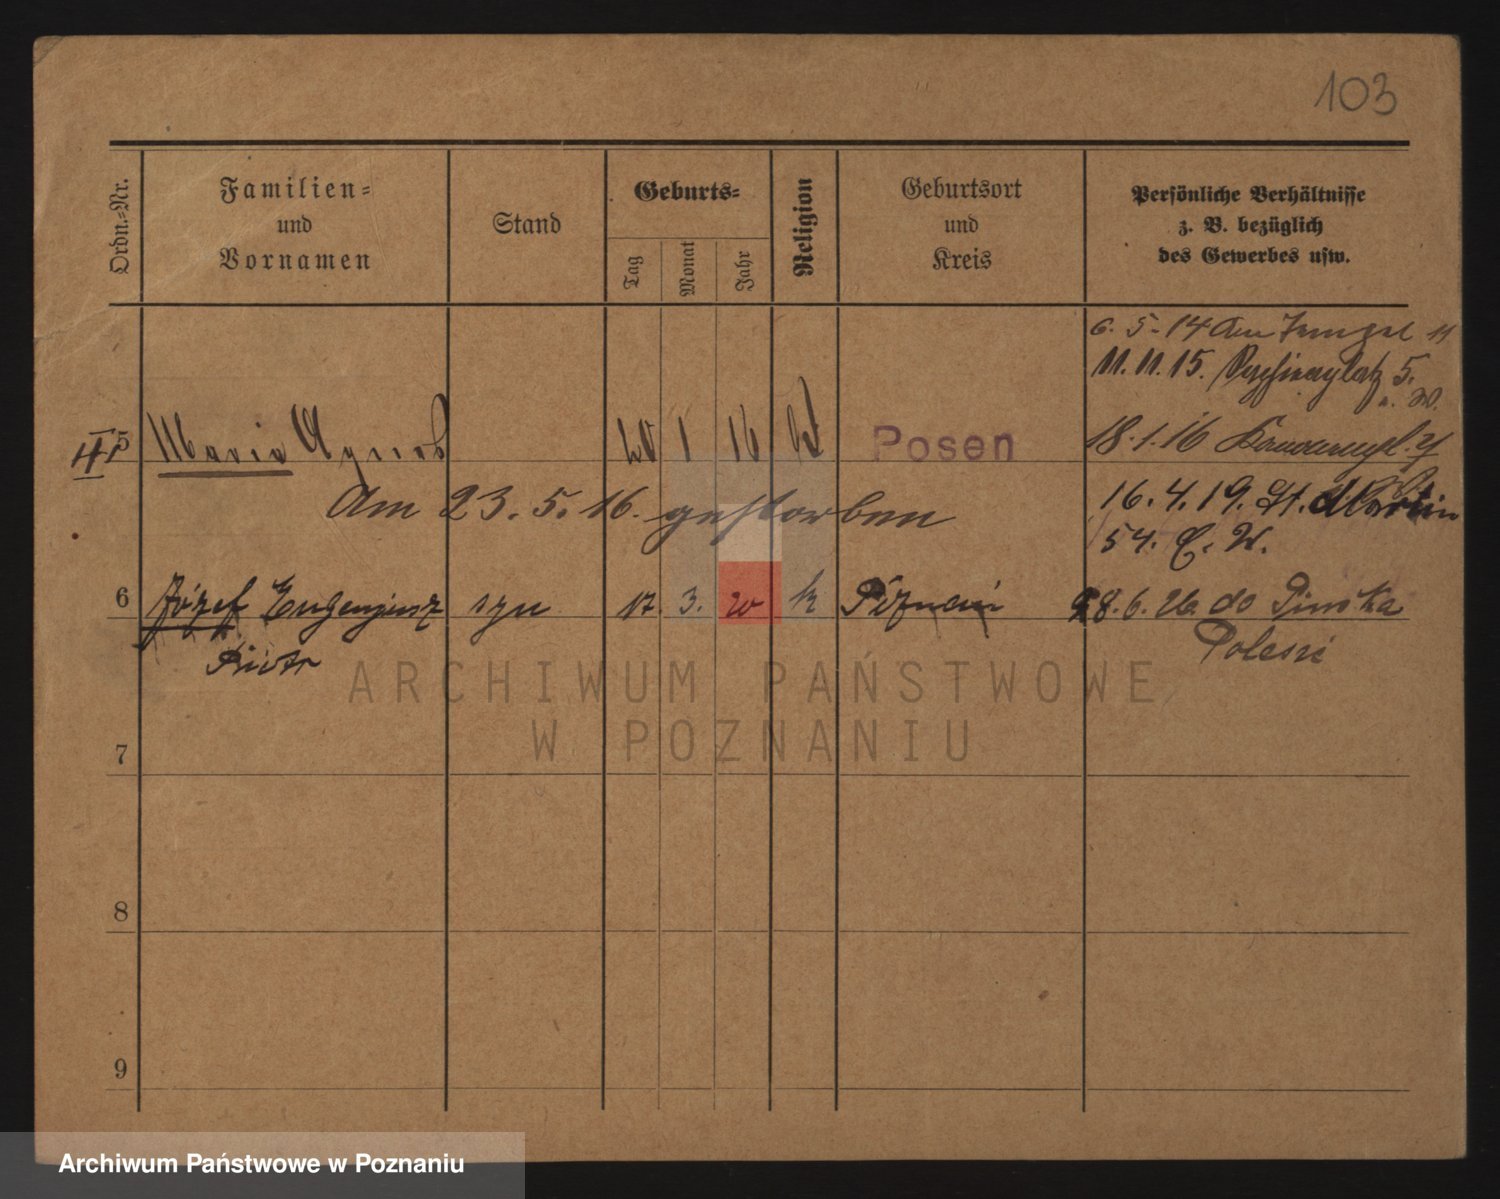 103
Ordn.-Nr.
Familien-
und
Vornamen
Stand
Geburts-
Tag
Monat
Jahr
Religion
Geburtsort
und
Kreis
Persönliche Verhältnisse
z. B. bezüglich
des Gewerbes usw.
6. 5. 14 Am 11
11. 11. 15. 5.
5 Maria Agnes 1 16 Posen 18. 1. 16
Am 23. 5. 16. gestorben
16. 4. 19. St. Martin
54. E. W.
6 Józef Eugenjusz syn 17. 3. 20 k Poznań 28. 6. 26 do Pinska
Piotr
Polesie
ARCHIWUM PAŃSTWOWE
W POZNANIU
7
8
9
Archiwum Państwowe w Poznaniu